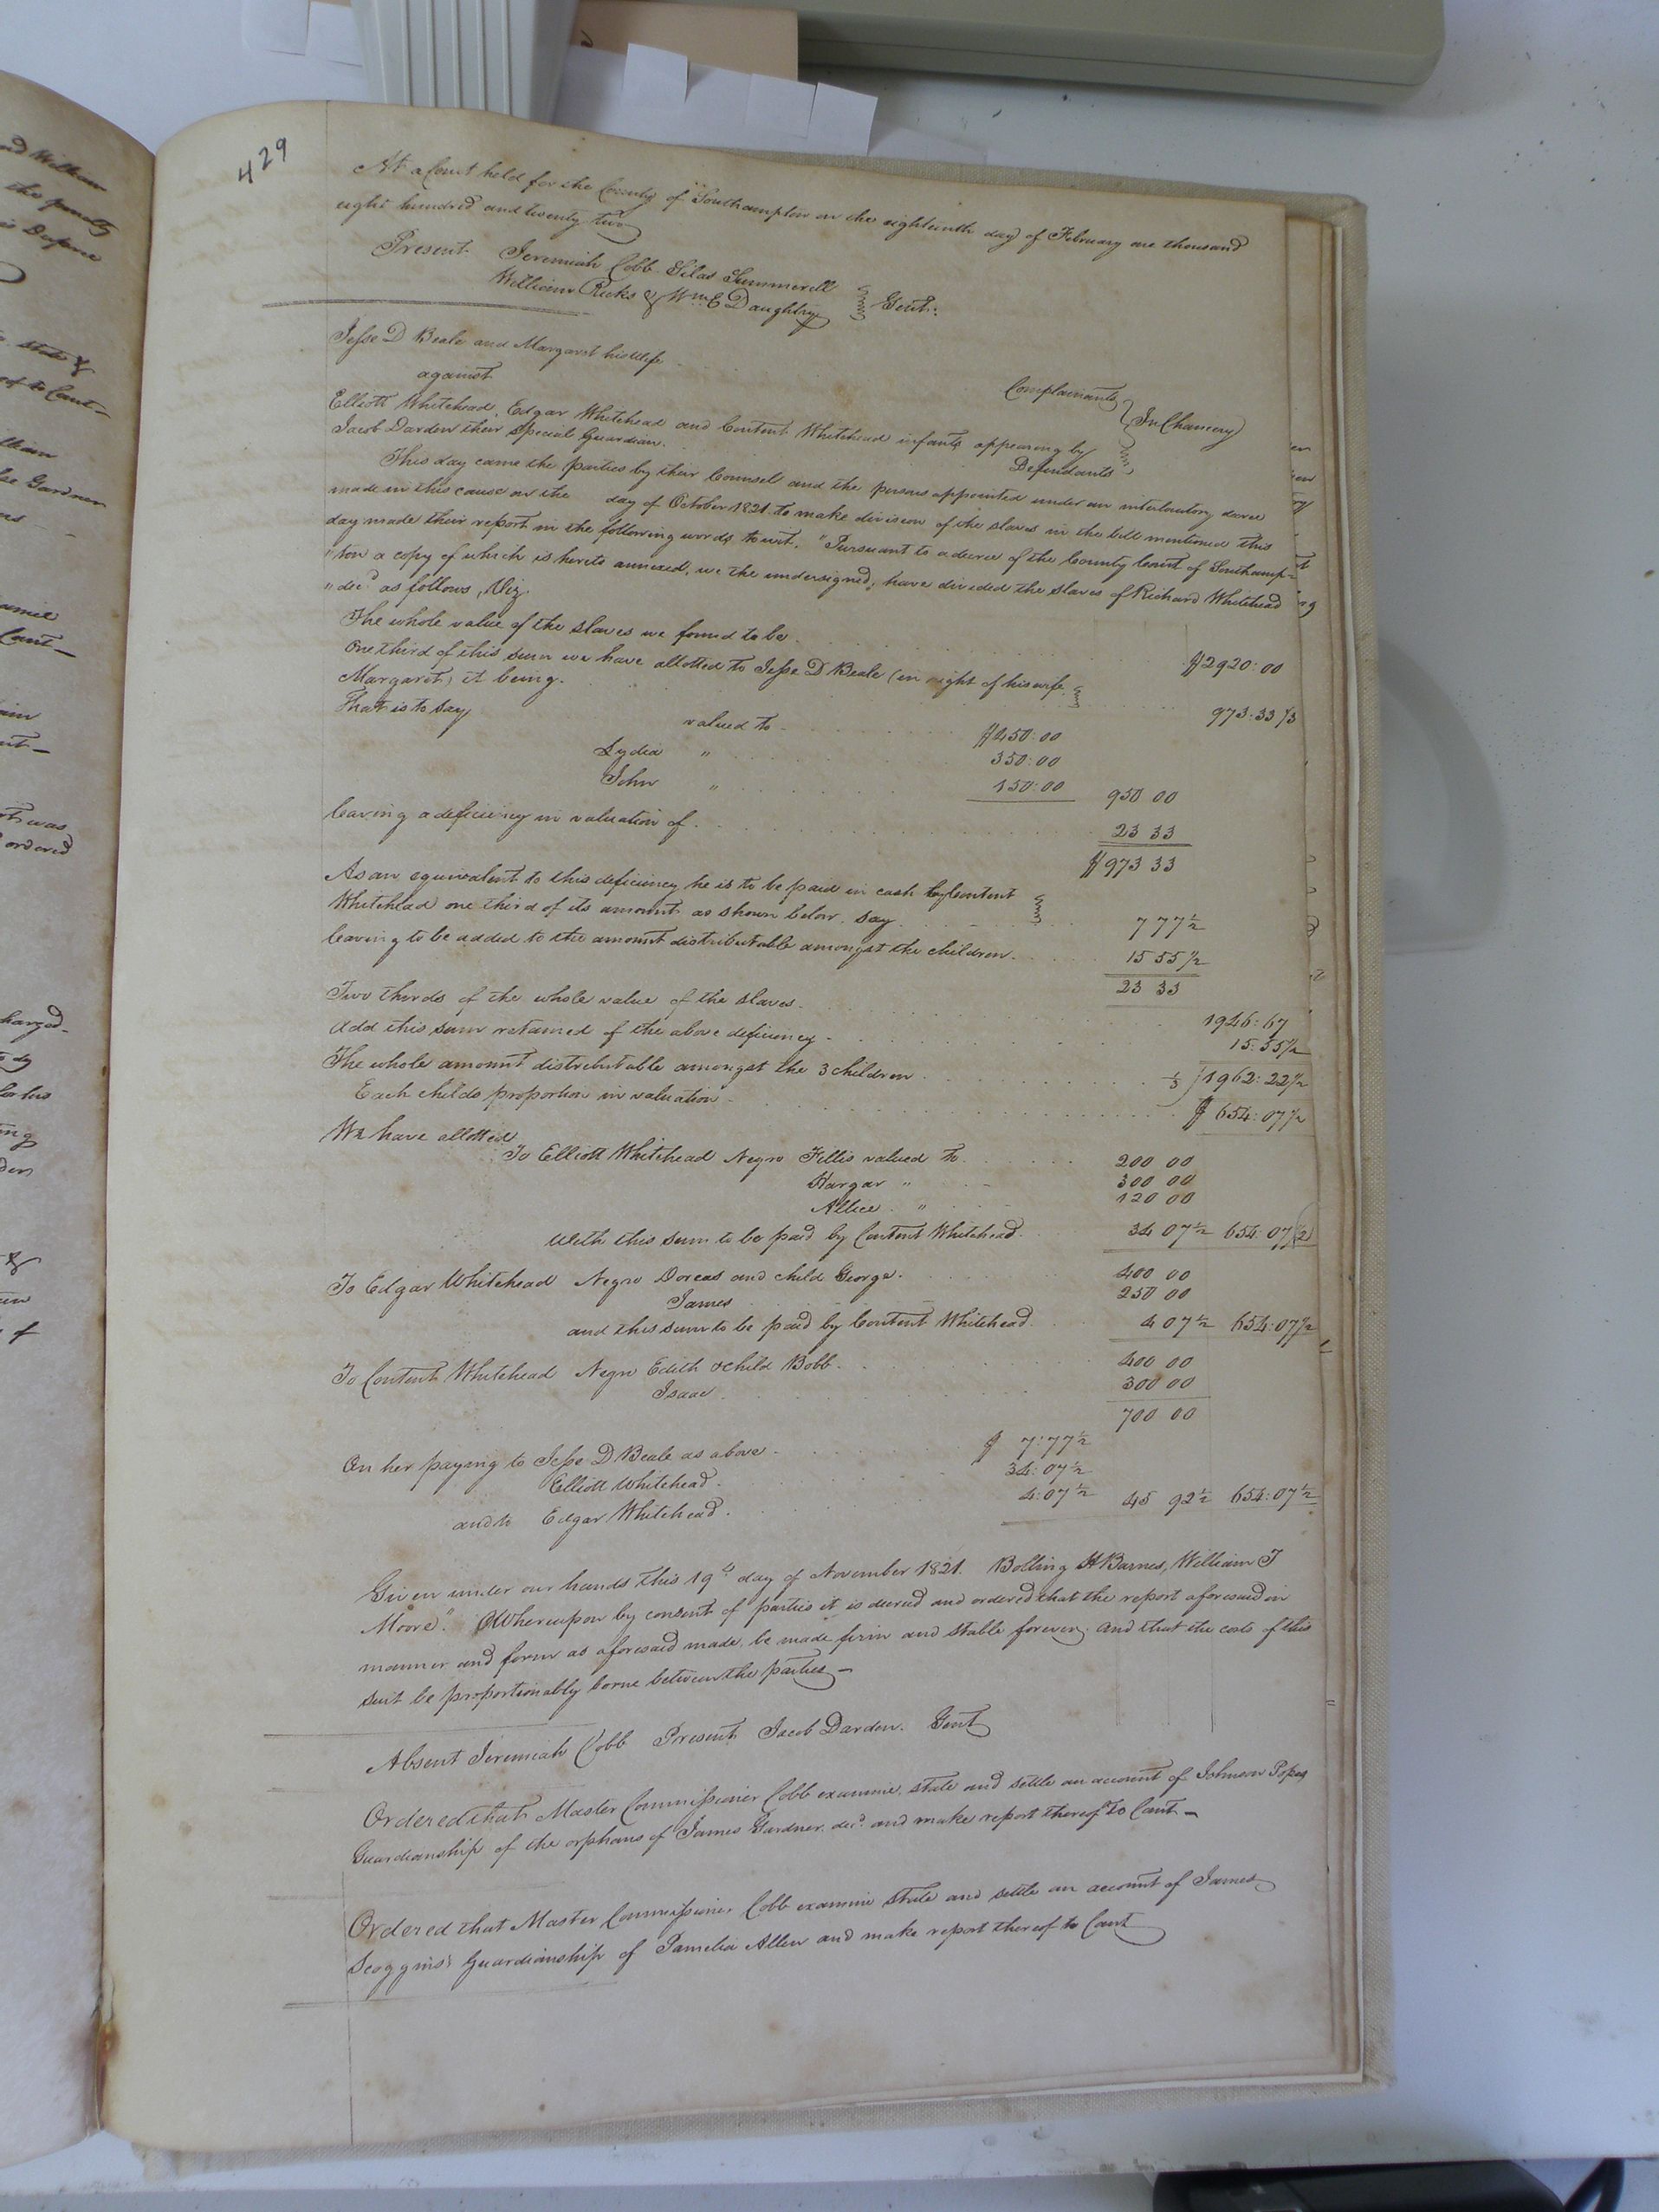 429
At a Court held for the County of Southampton on the eighteenth day of February one thousand
eight hundred and twenty two
Present. Jeremiah Cobb Silas Summerell
William Ricks & Wm E Daughtry Gent:
Jesse D Beale and Margaret his Wife Complainants
against In Chancery
Elliott Whitehead, Edgar Whitehead and Content Whitehead infants appearing by
Jacob Darden their Special Guardian. Defendants
This day came the parties by their Counsel and the persons appointed under an interlocutory decree
made in this cause on the day of October 1821. to make division of the slaves in the bill mentioned this
day made their report in the following words, to wit. "Pursuant to a decree of the County Court of Southamp=
"ton a copy of which is hereto annexed, we the undersigned, have divided the slaves of Richard Whitehead
" decd as follows, Viz.
The whole value of the slaves we found to be $2920:00
One third of this sum we have allotted to Jesse D Beale (in right of his wife
Margaret) it being. 973:33 1/3
That is to say valued to $450:00
Lydia " 350:00
John " 150:00 950 00
leaving a deficiency in valuation of 23 33
$973 33
As an equivalent to this deficiency he is to be paid in cash by Content
Whitehead one third of its amount as shown below. say 7 77 1/2
leaving to be added to the amount distributable amongst the children. 15 55 1/2
23 33
Two thirds of the whole value of the slaves. 1946:67
Add this sum retained of the above deficiency 15:55 1/2
The whole amount distributable amongst the 3 children 1/3 ) 1962:22 1/2
Each childs proportion in valuation $ 654:07 1/2
We have allotted
To Elliott Whitehead Negro Fillis valued to 200 00
Hargar " 300 00
Allice " 120 00
With this sum to be paid by Content Whitehead. 34 07 1/2 654:07 1/2
To Edgar Whitehead Negro Dorcas and child George. 400 00
James 250 00
and this sum to be paid by Content Whitehead 4 07 1/2 654:07 1/2
To Content Whitehead Negro Edith & child Bobb. 400 00
Isaac 300 00
700 00
On her paying to Jesse D Beale as above $ 7:77 1/2
Elliott Whitehead. 34:07 1/2
and to Edgar Whitehead. 4:07 1/2 45 92 1/2 654:07 1/2
Given under our hands this 19th day of November 1821. Bolling H Barnes, William T
Moore". Whereupon by consent of parties it is decreed and ordered that the report aforesaid in
manner and form as aforesaid made, be made firm and stable forever, and that the costs of this
suit be proportionably borne between the parties
Absent Jeremiah Cobb Present Jacob Darden. Gent
Ordered that Master Commissioner Cobb examine, state and settle an account of Johnson Popes
Guardianship of the orphans of James Gardner decd. and make report thereof to Court
Ordered that Master Commissioner Cobb examine state and settle an account of James
Scoggins's Guardianship of Pamelia Allen and make report thereof to Court